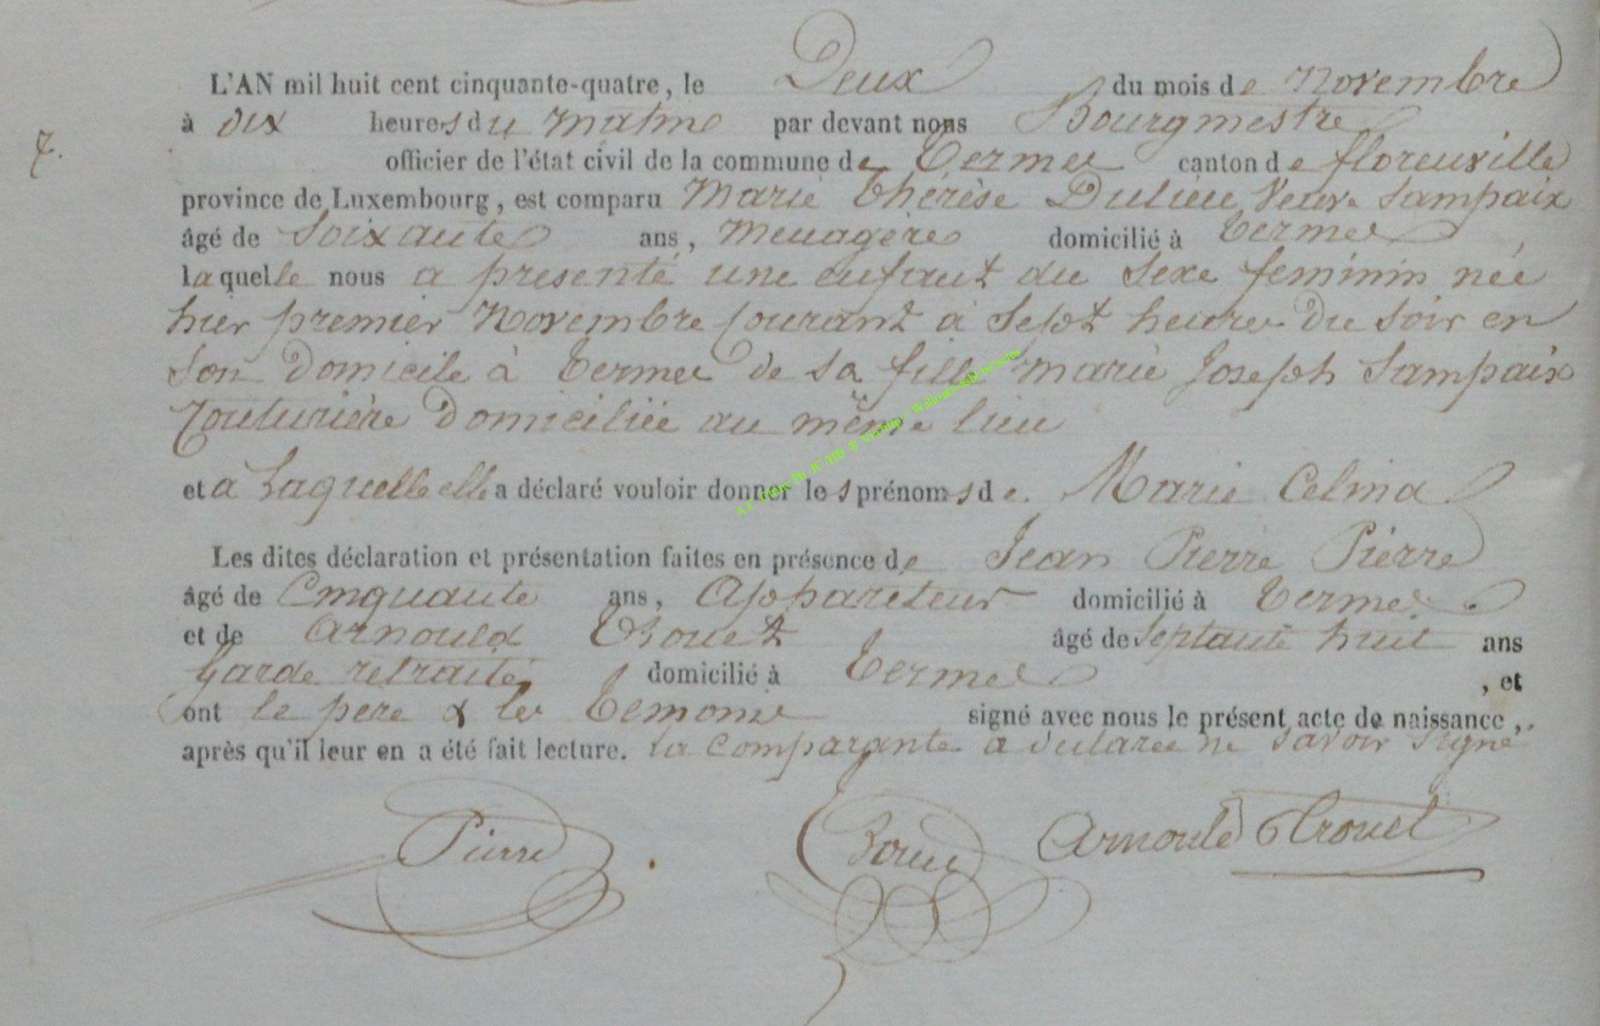 L'AN mil huit cent cinquante-quatre, le Deux du mois de Novembre
à dix heures du matin par devant nous Bourgmestre
7.
officier de l'état civil de la commune de Termes canton de florenville
province de Luxembourg, est comparu Marie Thérèse Dulieu Veuve Sampaix
âgé de Soixante ans, Menagère domicilié à Termes,
laquelle nous a presenté une enfant du Sexe feminin née
hier premier Novembre courant à Sept heures du Soir en
son Domicile à Termes de sa fille marie Joseph Sampaix
Couturière Domiciliée au même lieu
et a Laquelle elle a déclaré vouloir donner les prénoms de Marie Celina
Les dites déclaration et présentation faites en présence de Jean Pierre Pierre
âgé de Cinquante ans, Appariteur domicilié à Termes
et de Arnould âgé de Septante huit ans
Garde retraité domicilié à Termes, et
ont le père & les Temoins signé avec nous le présent acte de naissance,
après qu'il leur en a été fait lecture. la Comparante a declaree ne savoir signé
Pierre
Arnould